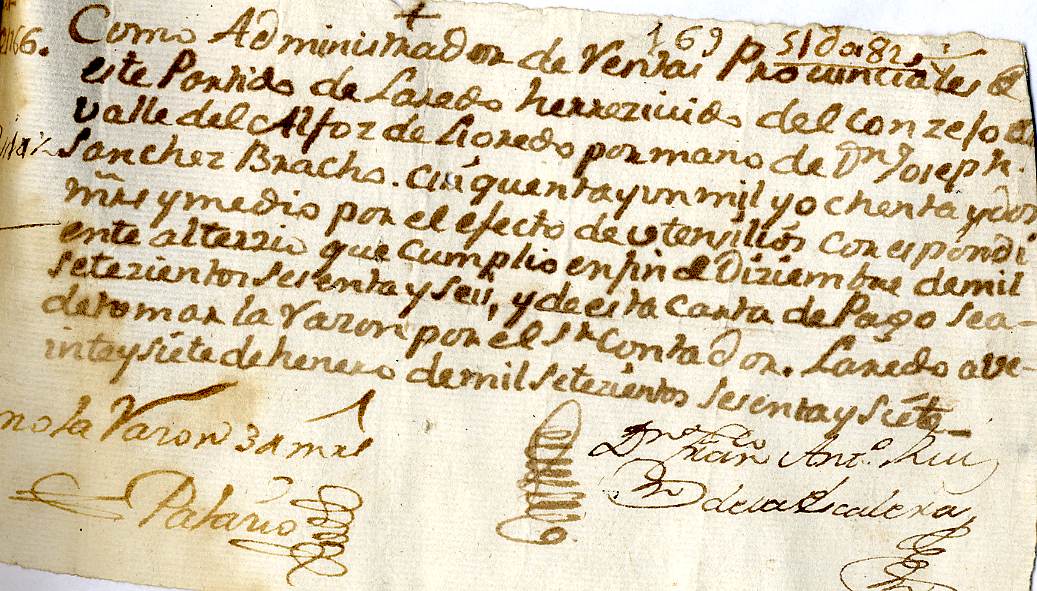 169 51Da82,
66. Como Administrador de Ventas Prouinciales de
este Partido de Laredo herrezivido del Conzejo de
valle del Alfoz de Lloredo por mano de Dn Joseph
Sanchez Bracho. cinquenta y un mil y ochenta y dos
mrs y medio por el efecto de utensilios Corespondi
ente alterzio que Cumplio enfin de Diziembre de mil
setezientos sesenta y seis, y de esta Carta de Pago sea-
de tomar la Razon por el Sr Contador. Laredo a ve-
inte y siete de henero de mil setezientos sesenta y siete-
la Razon 3d mrs
Dn Fran Anto Ruiz
de la Escalera
Palazio